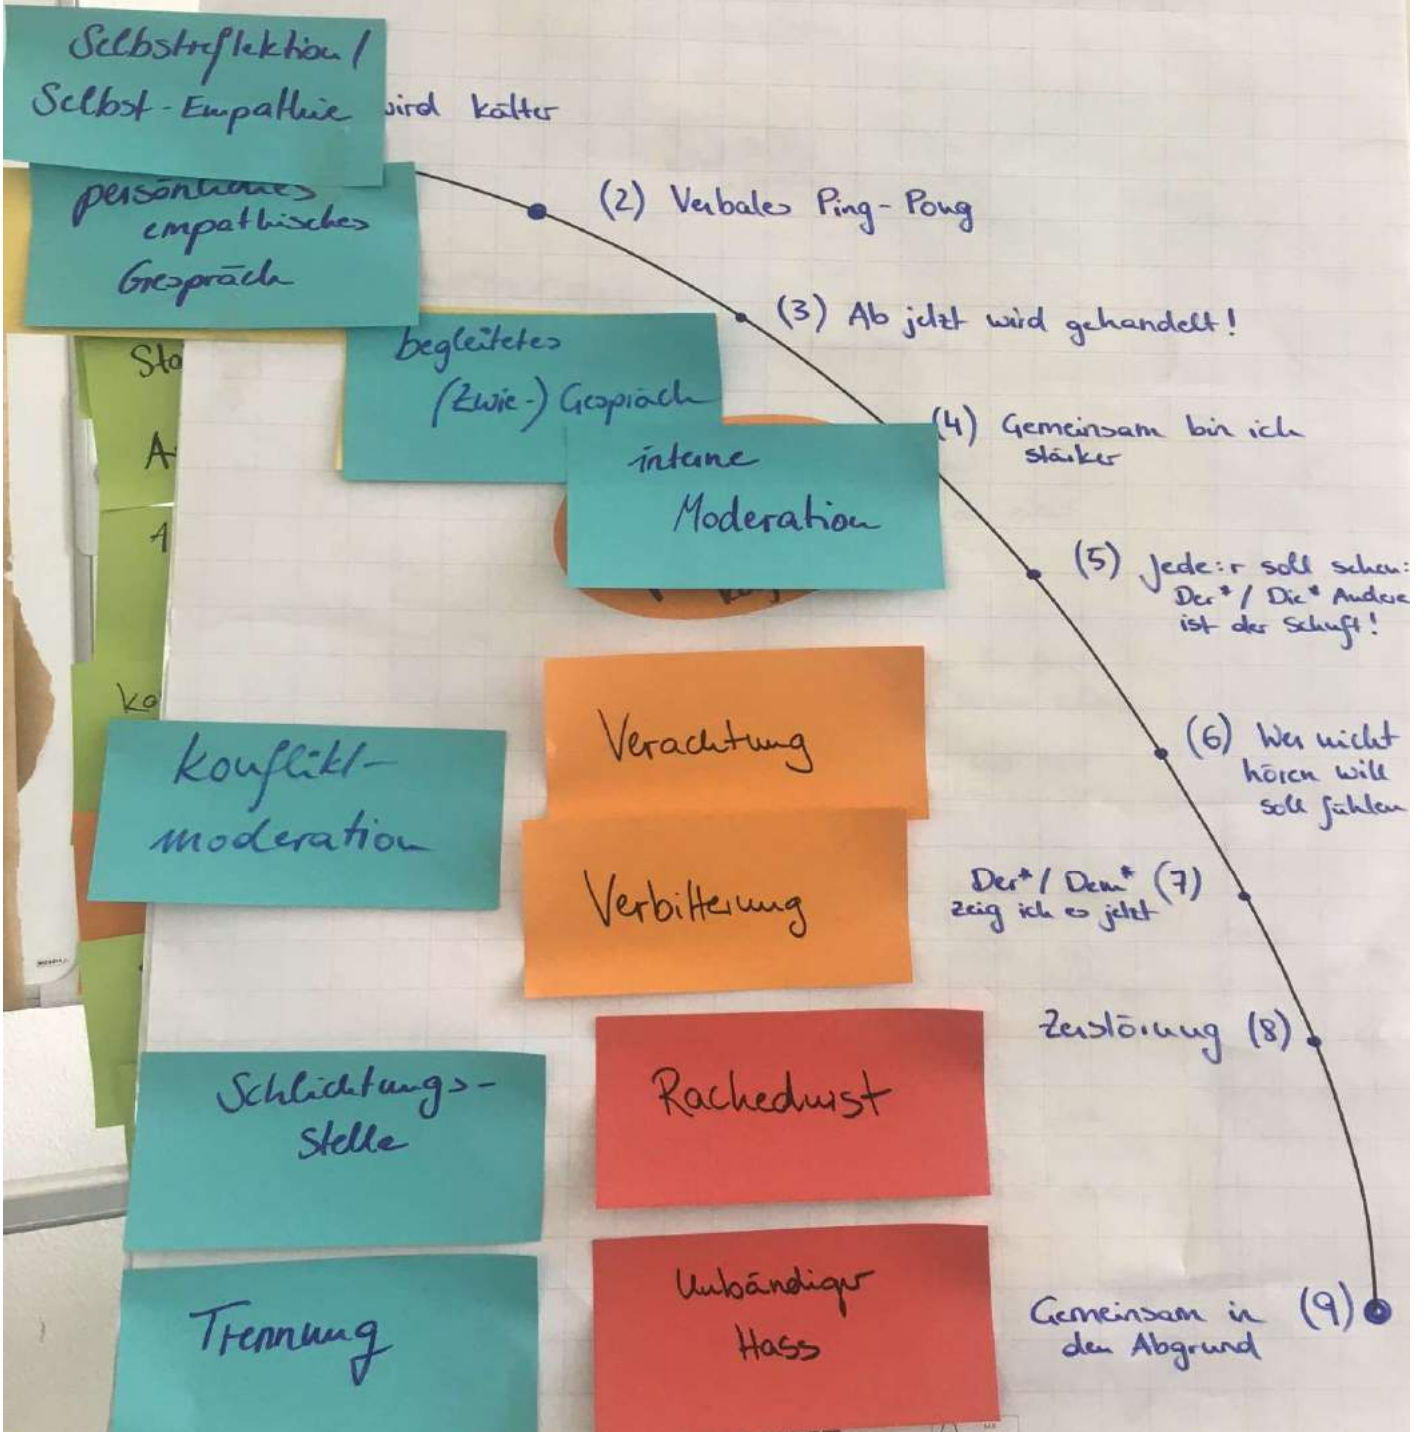 Selbstreflektion /
Selbst-Empathie
wird kälter
persönliches
empathisches
Gespräch
(2) Verbales Ping-Pong
(3) Ab jetzt wird gehandelt!
begleitetes
(Zwie-) Gespräch
Sta
A
A
(4) Gemeinsam bin ich
stärker
interne
Moderation
(5) Jede:r soll sehen:
Der* / Die* Andere
ist der Schuft!
Ko
Konflikt-
moderation
Verachtung
(6) Wer nicht
hören will
soll fühlen
Verbitterung
Der* / Dem* (7)
zeig ich es jetzt
Zerstörung (8)
Schlichtungs-
stelle
Rachedurst
Trennung
Unbändiger
Hass
Gemeinsam in (9)
den Abgrund